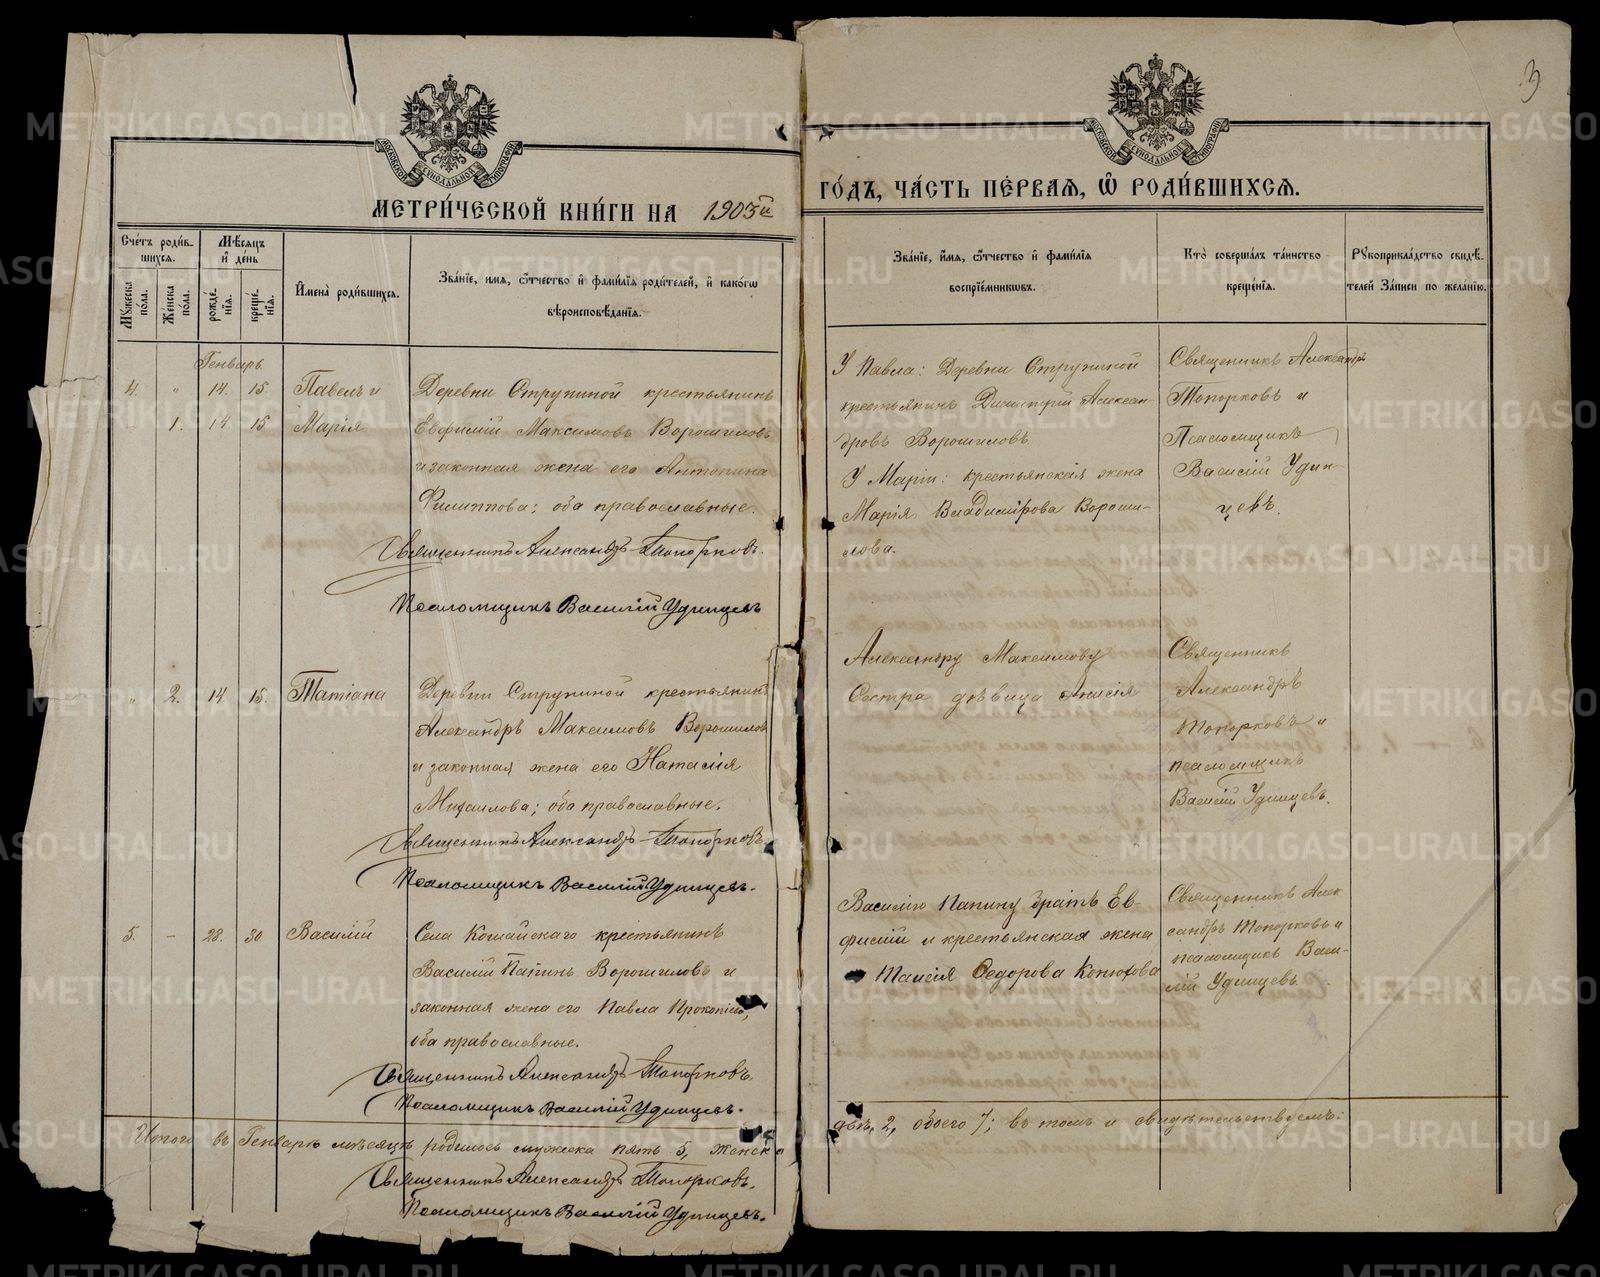 3
МОСКОВСКОЙ СѴНОДАЛЬНОЙ ТИПОГРАФІИ
МОСКОВСКОЙ СѴНОДАЛЬНОЙ ТИПОГРАФІИ
МЕТРИ́ЧЕСКОЙ КНИ́ГИ НА 1903й
ГО́ДЪ, ЧА́СТЬ ПЕ́РВАѦ, Ѡ҆ РОДИ́ВШИХСѦ.
Сче́тъ роди́в-
шихсѧ.
Мꙋ́жеска по́ла.
Же́нска по́ла.
Мѣ́сѧцъ и҆ де́нь
рожде́-нїѧ.
креще́-нїѧ.
И҆мена̀ роди́вшихсѧ.
Зва́нїе, и́мѧ, ѻ҆́тчество и҆ фами́лїѧ роди́телей, и҆ како́гѡ
вѣроисповѣ́данїѧ.
Зва́нїе, и́мѧ, ѻ҆́тчество и҆ фами́лїѧ
воспрїе́мникѡвъ.
Кто̀ соверша́лъ та́инство
креще́нїѧ.
Рꙋкоприкла́дство свидѣ́-
телей за́писи по жела́нїю.
Генварь.
4. " 14. 15. Павелъ и
" 1. 14. 15 Марія
Деревни Струниной крестьянинъ
Евфимій Максимовъ Ворошиловъ
и законная жена его Антонина
Филиппова; оба православные.
Священникъ Александръ Топорковъ.
Псаломщикъ Василій Удинцевъ
У Павла: Деревни Струниной
крестьянинъ Димитрій Алексан-
дровъ Ворошиловъ.
У Маріи: крестьянская жена
Марія Владимірова Вороши-
лова.
Священникъ Александръ
Топорковъ и
Псаломщикъ
Василій Удин-
цевъ.
" 2. 14. 15. Татіана
Деревни Струниной крестьянинъ
Александръ Максимовъ Ворошиловъ
и законная жена его Наталія
Михаилова; оба православные.
Священникъ Александръ Топорковъ.
Псаломщикъ Василій Удинцевъ.
Александру Максимову
Сестра дѣвица Анисія
Священникъ
Александръ
Топорковъ и
псаломщикъ
Василій Удинцевъ.
5. – 28. 30. Василій
Села Кошайскаго крестьянинъ
Василій Папинъ Ворошиловъ и
законная жена его Павла Прокопіева,
оба православные.
Священникъ Александръ Топорковъ.
Псаломщикъ Василій Удинцевъ.
Василію Папину братъ Ев-
фимій и крестьянская жена
Таисія Ѳедорова Конюхова
Священникъ Алек
сандръ Топорковъ и
псаломщикъ Васи-
лій Удинцевъ.
Итого въ Генварѣ мѣсяцѣ родилось мужеска пять 5, женска
двѣ, 2, обоего 7; въ томъ и свидѣтельствуемъ:
Священникъ Александръ Топорковъ.
Псаломщикъ Василій Удинцевъ.
METRIKI.GASO-URAL.RU